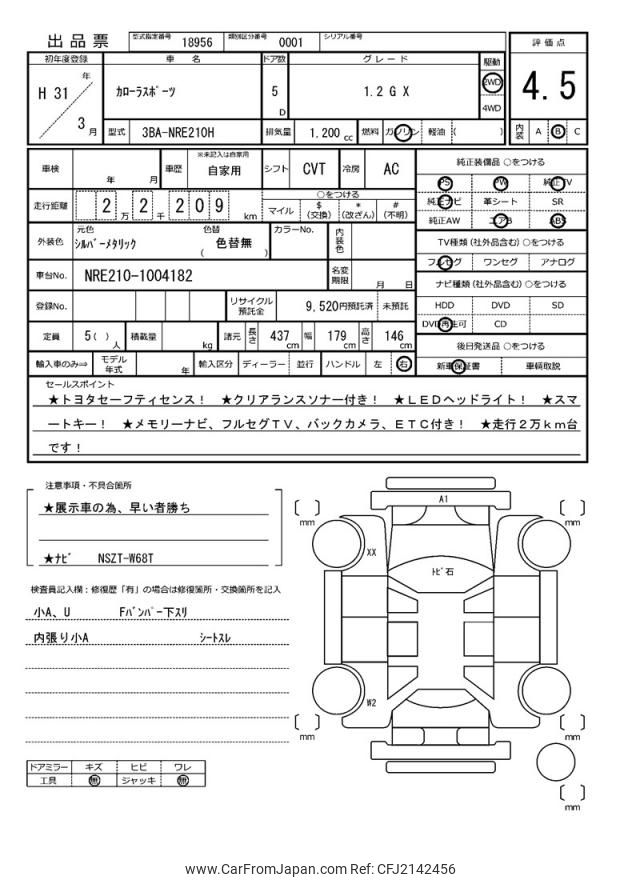 出品票
型式指定番号 18956 類別区分番号 0001 シリアル番号
評価点
4.5
内装 A B C
初年度登録 車名 ドア数 グレード 駆動
H 31 年 3 月
カローラスポーツ 5 D 1.2 G X 2WD 4WD
型式 3BA-NRE210H 排気量 1.200 cc 燃料 ガソリン 軽油 ( )
車検 年 月 車歴 ※未記入は自家用 自家用 シフト CVT 冷房 AC
走行距離 2 万 2 千 2 0 9 km
○をつける
マイル $(交換) *(改ざん) #(不明)
外装色 元色 シルバーメタリック 色替 ( 色替無 ) カラーNo. 内装色
車台No. NRE210-1004182 名変期限 月 日
登録No. リサイクル預託金 9,520円預託済 未預託
定員 5( )人 積載量 kg 諸元 長さ 437 cm 幅 179 cm 高さ 146 cm
輸入車のみ⇒ モデル年式 年 輸入区分 ディーラー 並行 ハンドル 左 右
純正装備品 ○をつける
PS PW 純正TV
純正ナビ 革シート SR
純正AW エアB ABS
TV種類(社外品含む)○をつける
フルセグ ワンセグ アナログ
ナビ種類(社外品含む)○をつける
HDD DVD SD
DVD再生可 CD
後日発送品 ○をつける
新車保証書 車輌取説
セールスポイント
★トヨタセーフティセンス! ★クリアランスソナー付き! ★LEDヘッドライト! ★スマ
ートキー! ★メモリーナビ、フルセグTV、バックカメラ、ETC付き! ★走行2万km台
です!
注意事項・不具合箇所
★展示車の為、早い者勝ち
★ナビ NSZT-W68T
検査員記入欄:修復歴「有」の場合は修復箇所・交換箇所を記入
小A、U Fバンパー下スリ
内張り小A シートスレ
ドアミラー キズ ヒビ ワレ
工具 無 ジャッキ 無
A1
mm mm
XX
トビ石
W2
mm mm
mm
www.CarFromJapan.com Ref: CFJ2142456